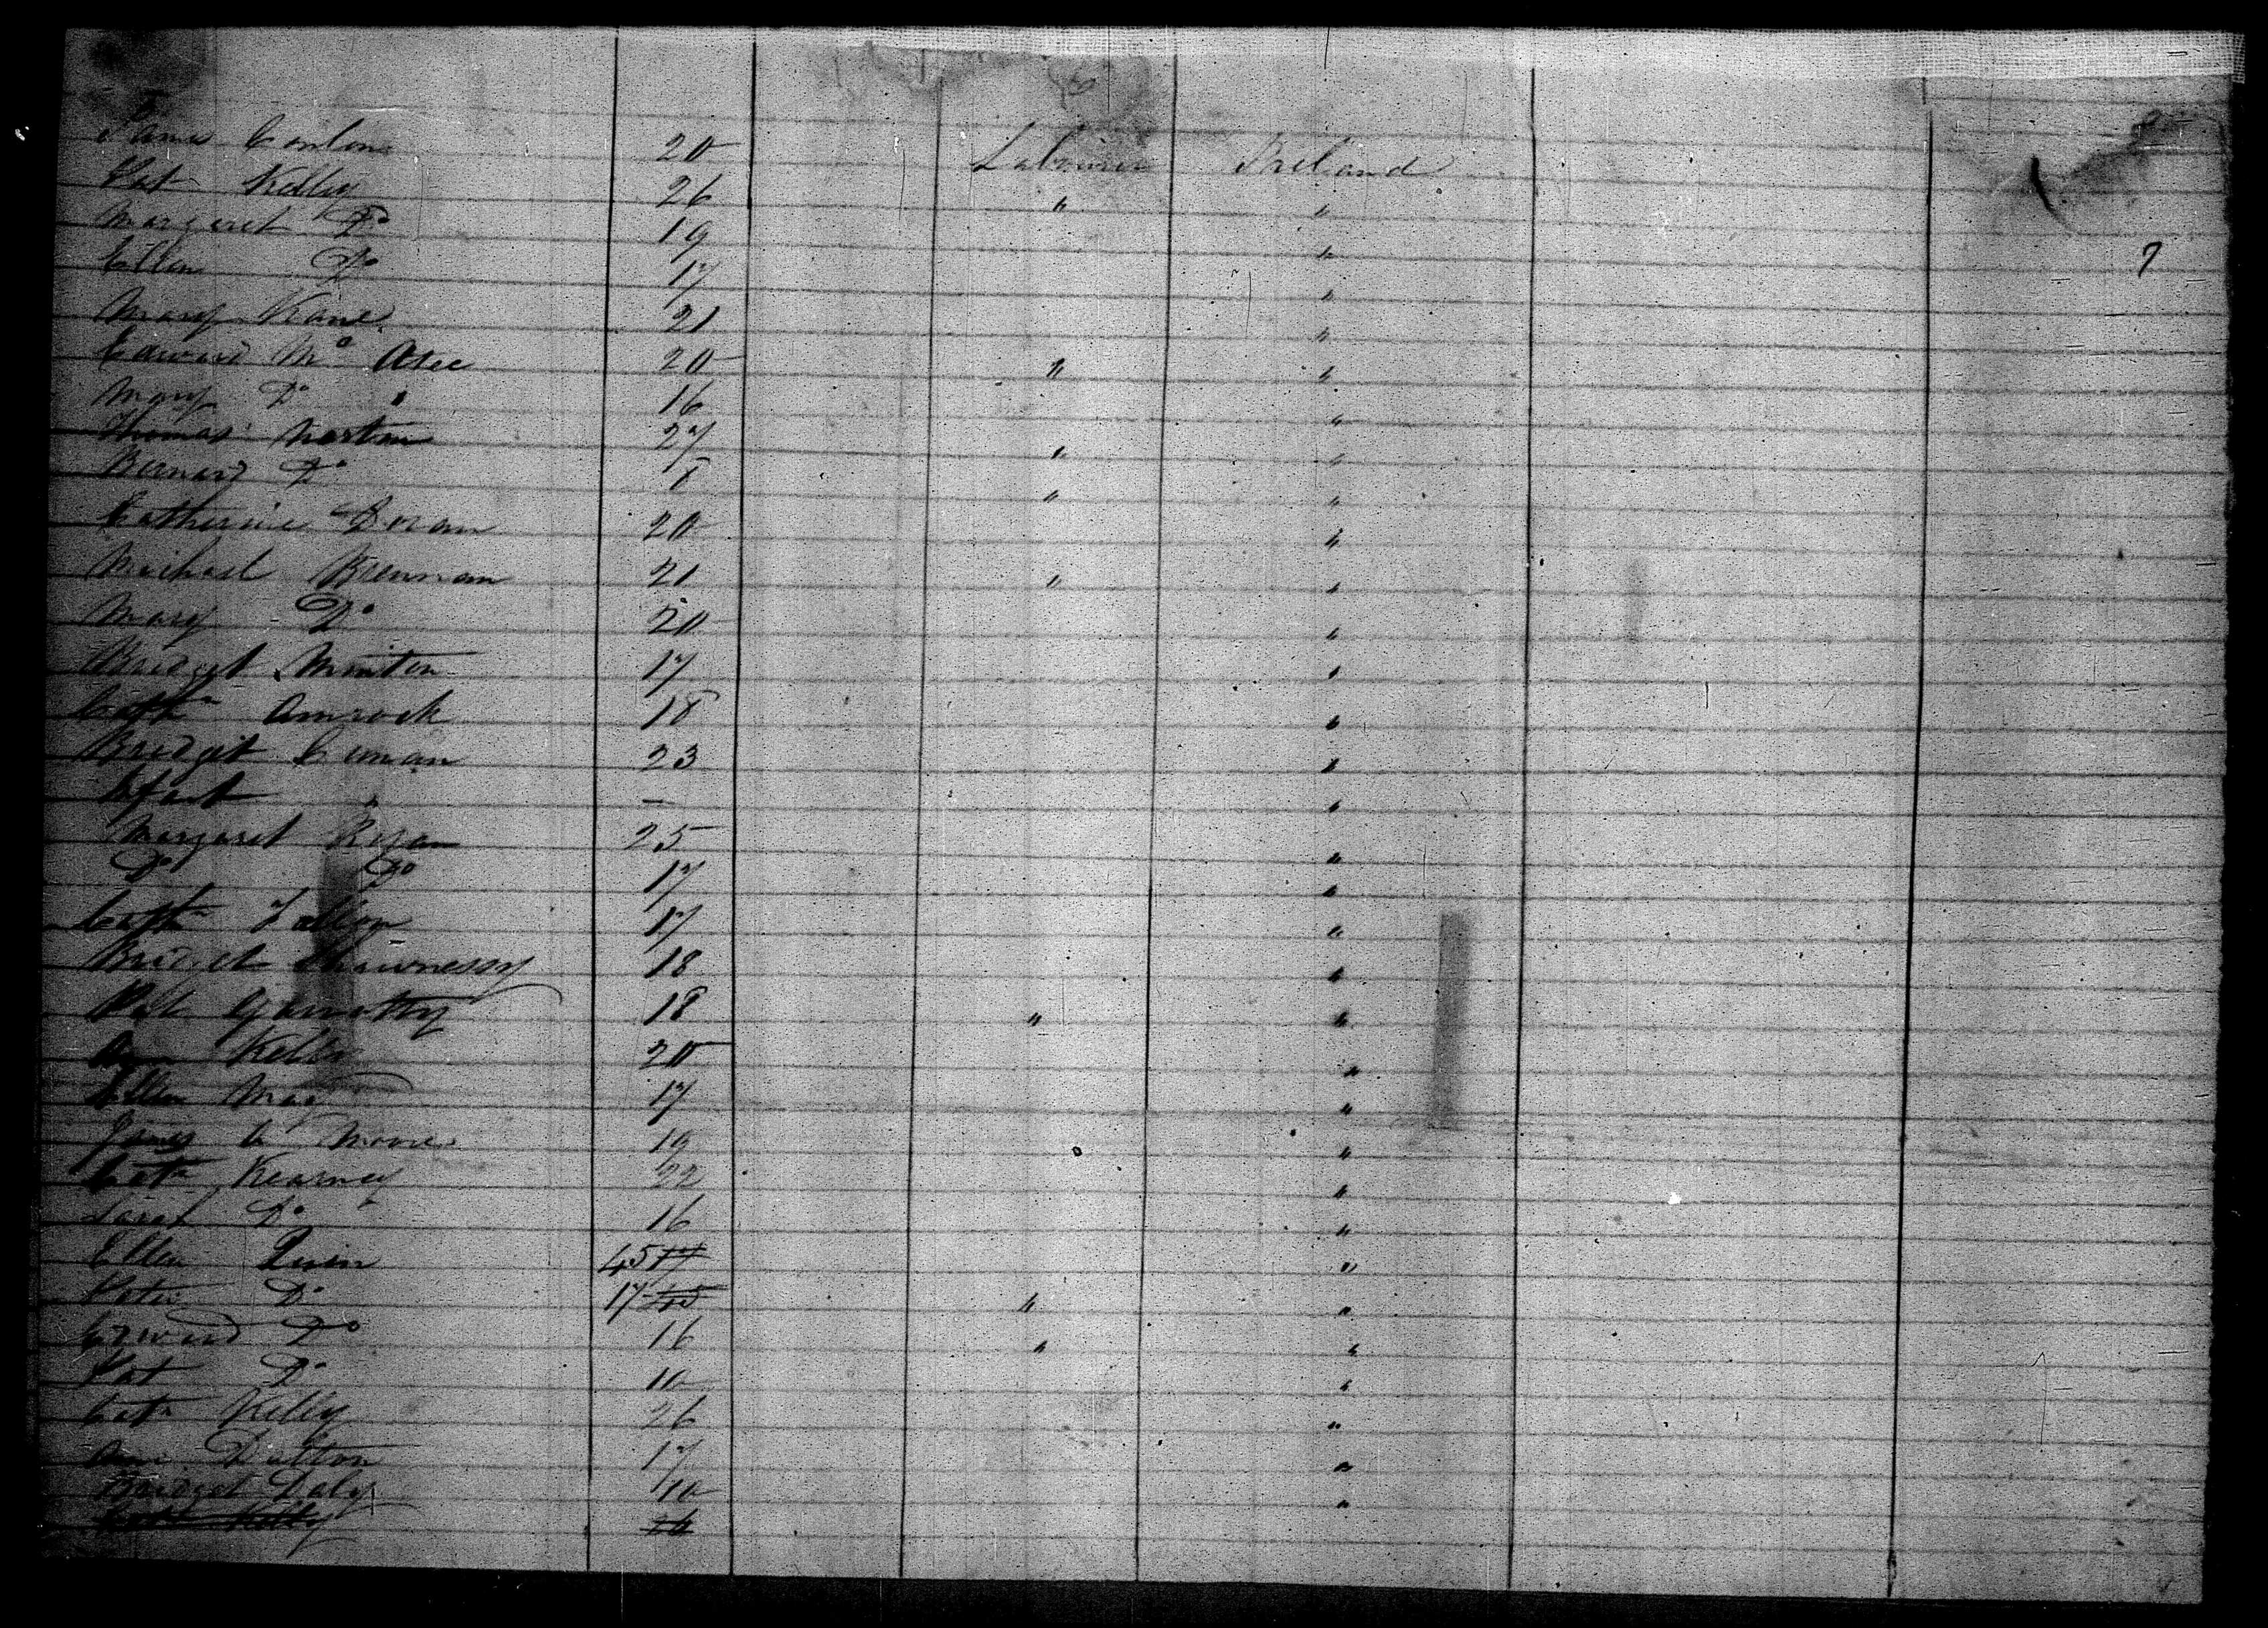 James Conlon 20 Labourer Ireland
Pat Kelly 26 " "
Margaret Do 19 "
Ellen Do 17 " 7
Mary Kane 21 "
Edward Mc Atee 20 " "
Mary Do 16 "
Thomas Martin 27 " "
Bernard Do 8 " "
Catherine Doran 20 "
Michael Brennan 21 " "
Mary Do 20 "
Bridget Minton 17 "
Cathn Amrock 18 "
Bridget 23 "
Infant – "
Margaret Ryan 25 "
Do Do 17 "
Cathn Fallon 17 "
Bridget Shawnessy 18 "
Pat Garratty 18 " "
Ann Kelly 20 "
Ellen May 17 "
James Moore 19 "
Cathn Kearney 22 "
Sarah Do 16 "
Ellen Quin 45 17 "
Peter Do 17 45 " "
Edward Do 16 " "
Pat Do 10 "
Cathn Kelly 26 "
Ann Dalton 17 "
Bridget Daly 10 "
Cathn Kelly 26